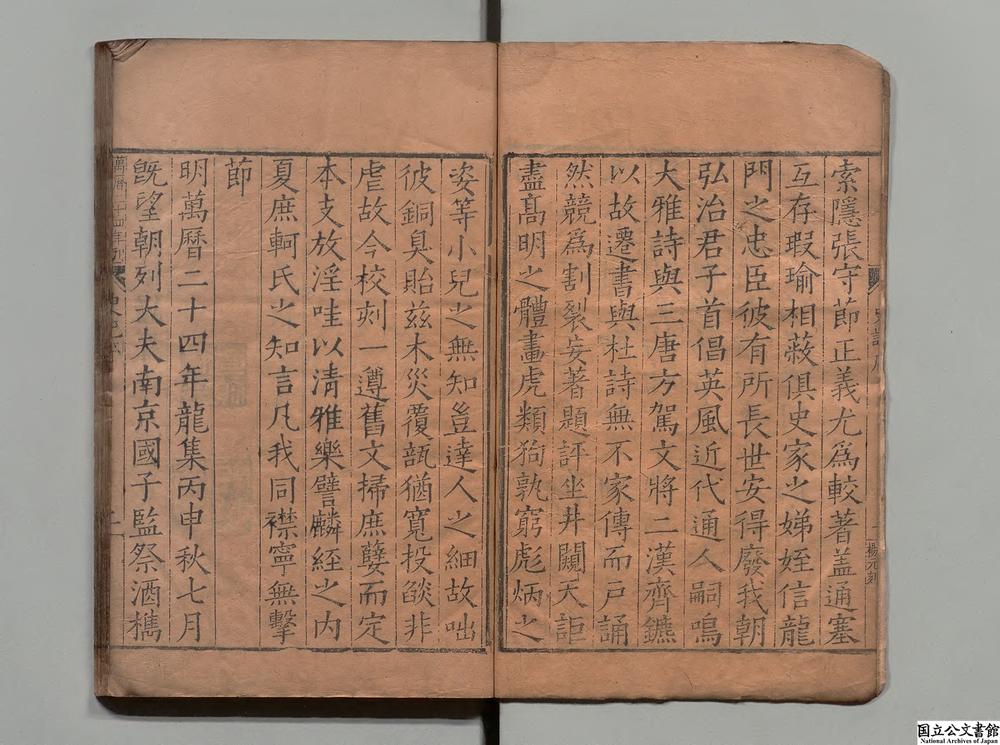 索隱張守節正義尤爲較著盖通塞
互存瑕瑜相蔽俱史家之娣姪信龍
門之忠臣彼有所長世安得廢我朝
弘治君子首倡英風近代通人嗣鳴
大雅詩與三唐方駕文將二漢齊鑣
以故遷書與杜詩無不家傳而戸誦
然競爲割裂妄著題評坐井闚天詎
盡高明之體畫虎類狗孰窮彪炳之
姿等小兒之無知豈達人之細故咄
彼銅臭貽兹木災覆瓿猶寬投燄非
虐故今校刻一遵舊文掃庶孽而定
本支放淫哇以清雅樂譬麟經之内
夏庶軻氏之知言凡我同襟寧無擊
節
明萬曆二十四年龍集丙申秋七月
旣望朝列大夫南京國子監祭酒檇
萬曆二十四年刊
楊元刻
国立公文書館
National Archives of Japan